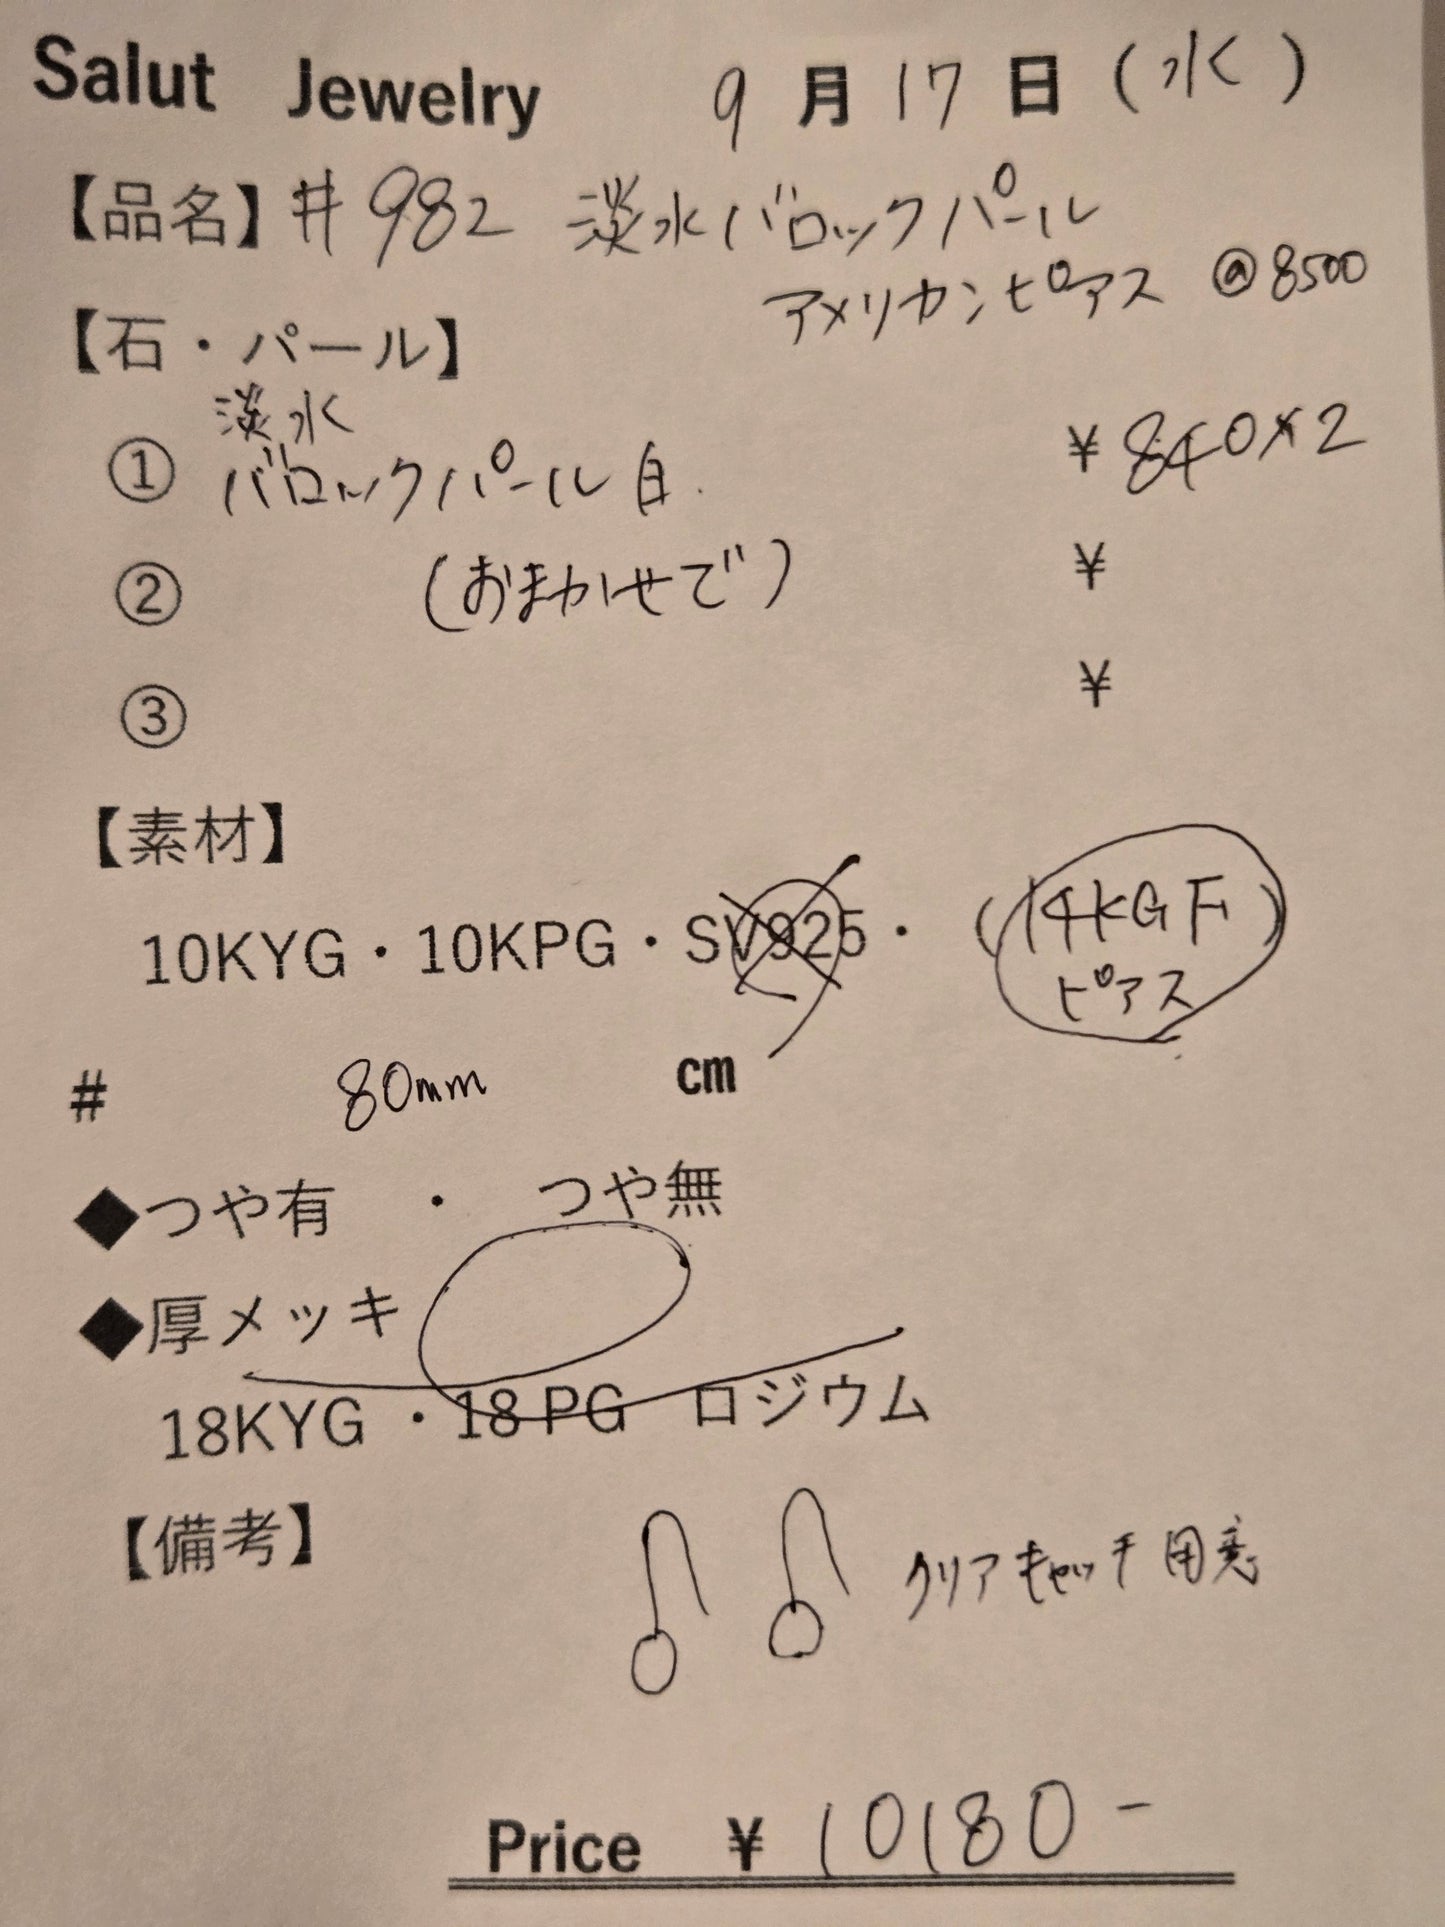 Salut Jewelry 9月17日(水)
【品名】#982 淡水バロックパール
アメリカンピアス @8500
【石・パール】
淡水
① バロックパール白 ¥840×2
② (おまかせで) ¥
③ ¥
【素材】
10KYG・10KPG・SV925・(14KGF)
ピアス
# 80mm cm
◆つや有 ・ つや無
◆厚メッキ
18KYG ・18 PG ロジウム
【備考】 クリアキャッチ用意
Price ¥10180-